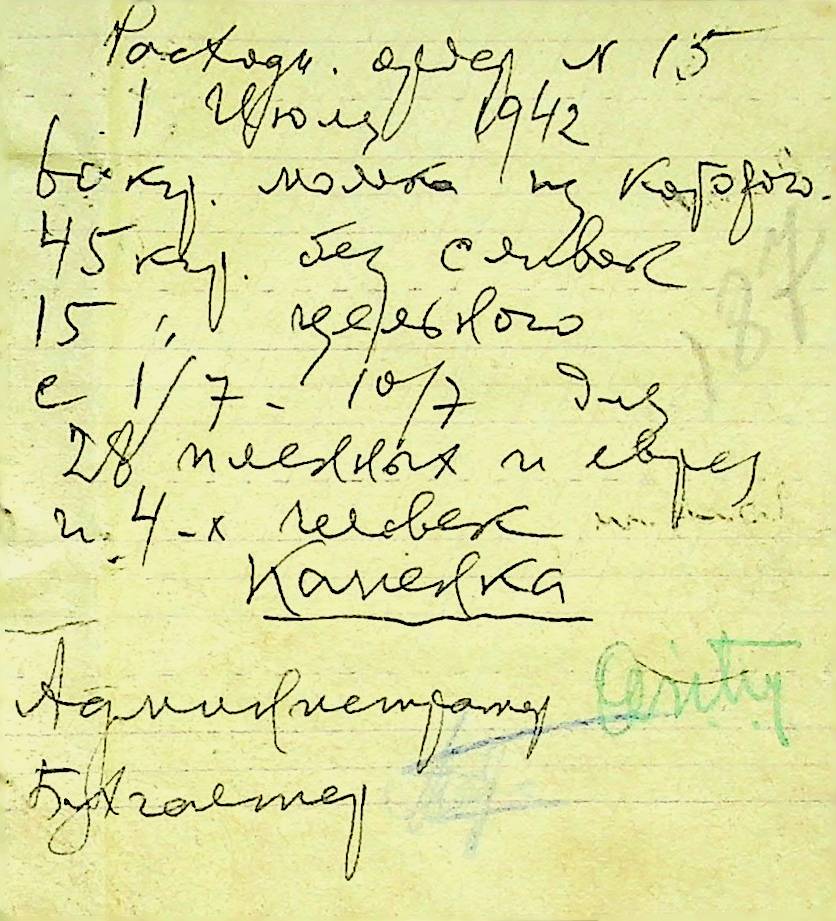 Расходн. ордер N 15
1 Июля 1942
60 кгр. молока из которого.
45 кгр. без сливок
15 " цельного
с 1/7 - 10/7 для
28 пленных и еврея
и 4-х человек
Каменка
187
Администратор
Бухгалтер